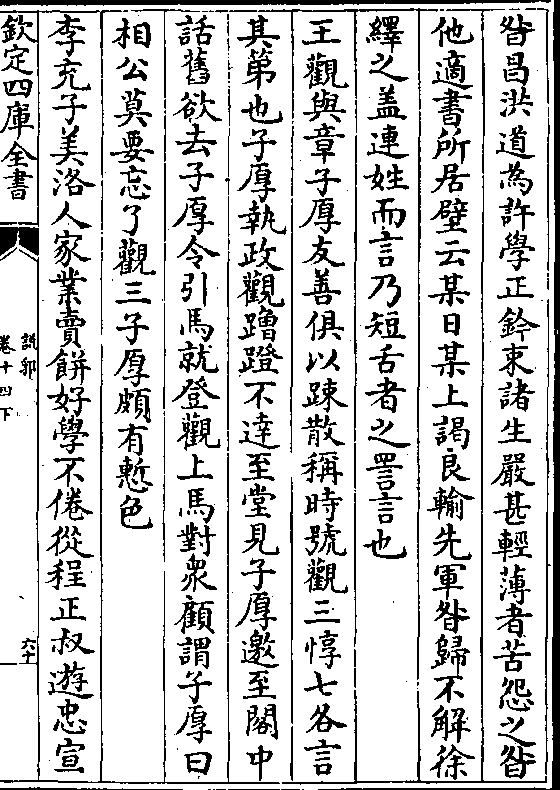 昝昌洪道為許學正鈐束諸生嚴甚輕薄者苦怨之昝
他適書所居壁云某日某上謁良輸先軍昝歸不解徐
繹之蓋連姓而言乃短舌者之詈言也
王觀與章子厚友善俱以踈散稱時號觀三惇七各言
其第也子厚執政觀蹭蹬不達至堂見子厚邀至閣中
話舊欲去子厚令引馬就登觀上馬對衆顧謂子厚曰
相公莫要忘了觀三子厚頗有慙色
李充子美洛人家業賣餅好學不倦從程正叔遊忠宣
欽定四庫全書
說郛
卷十四下
六十